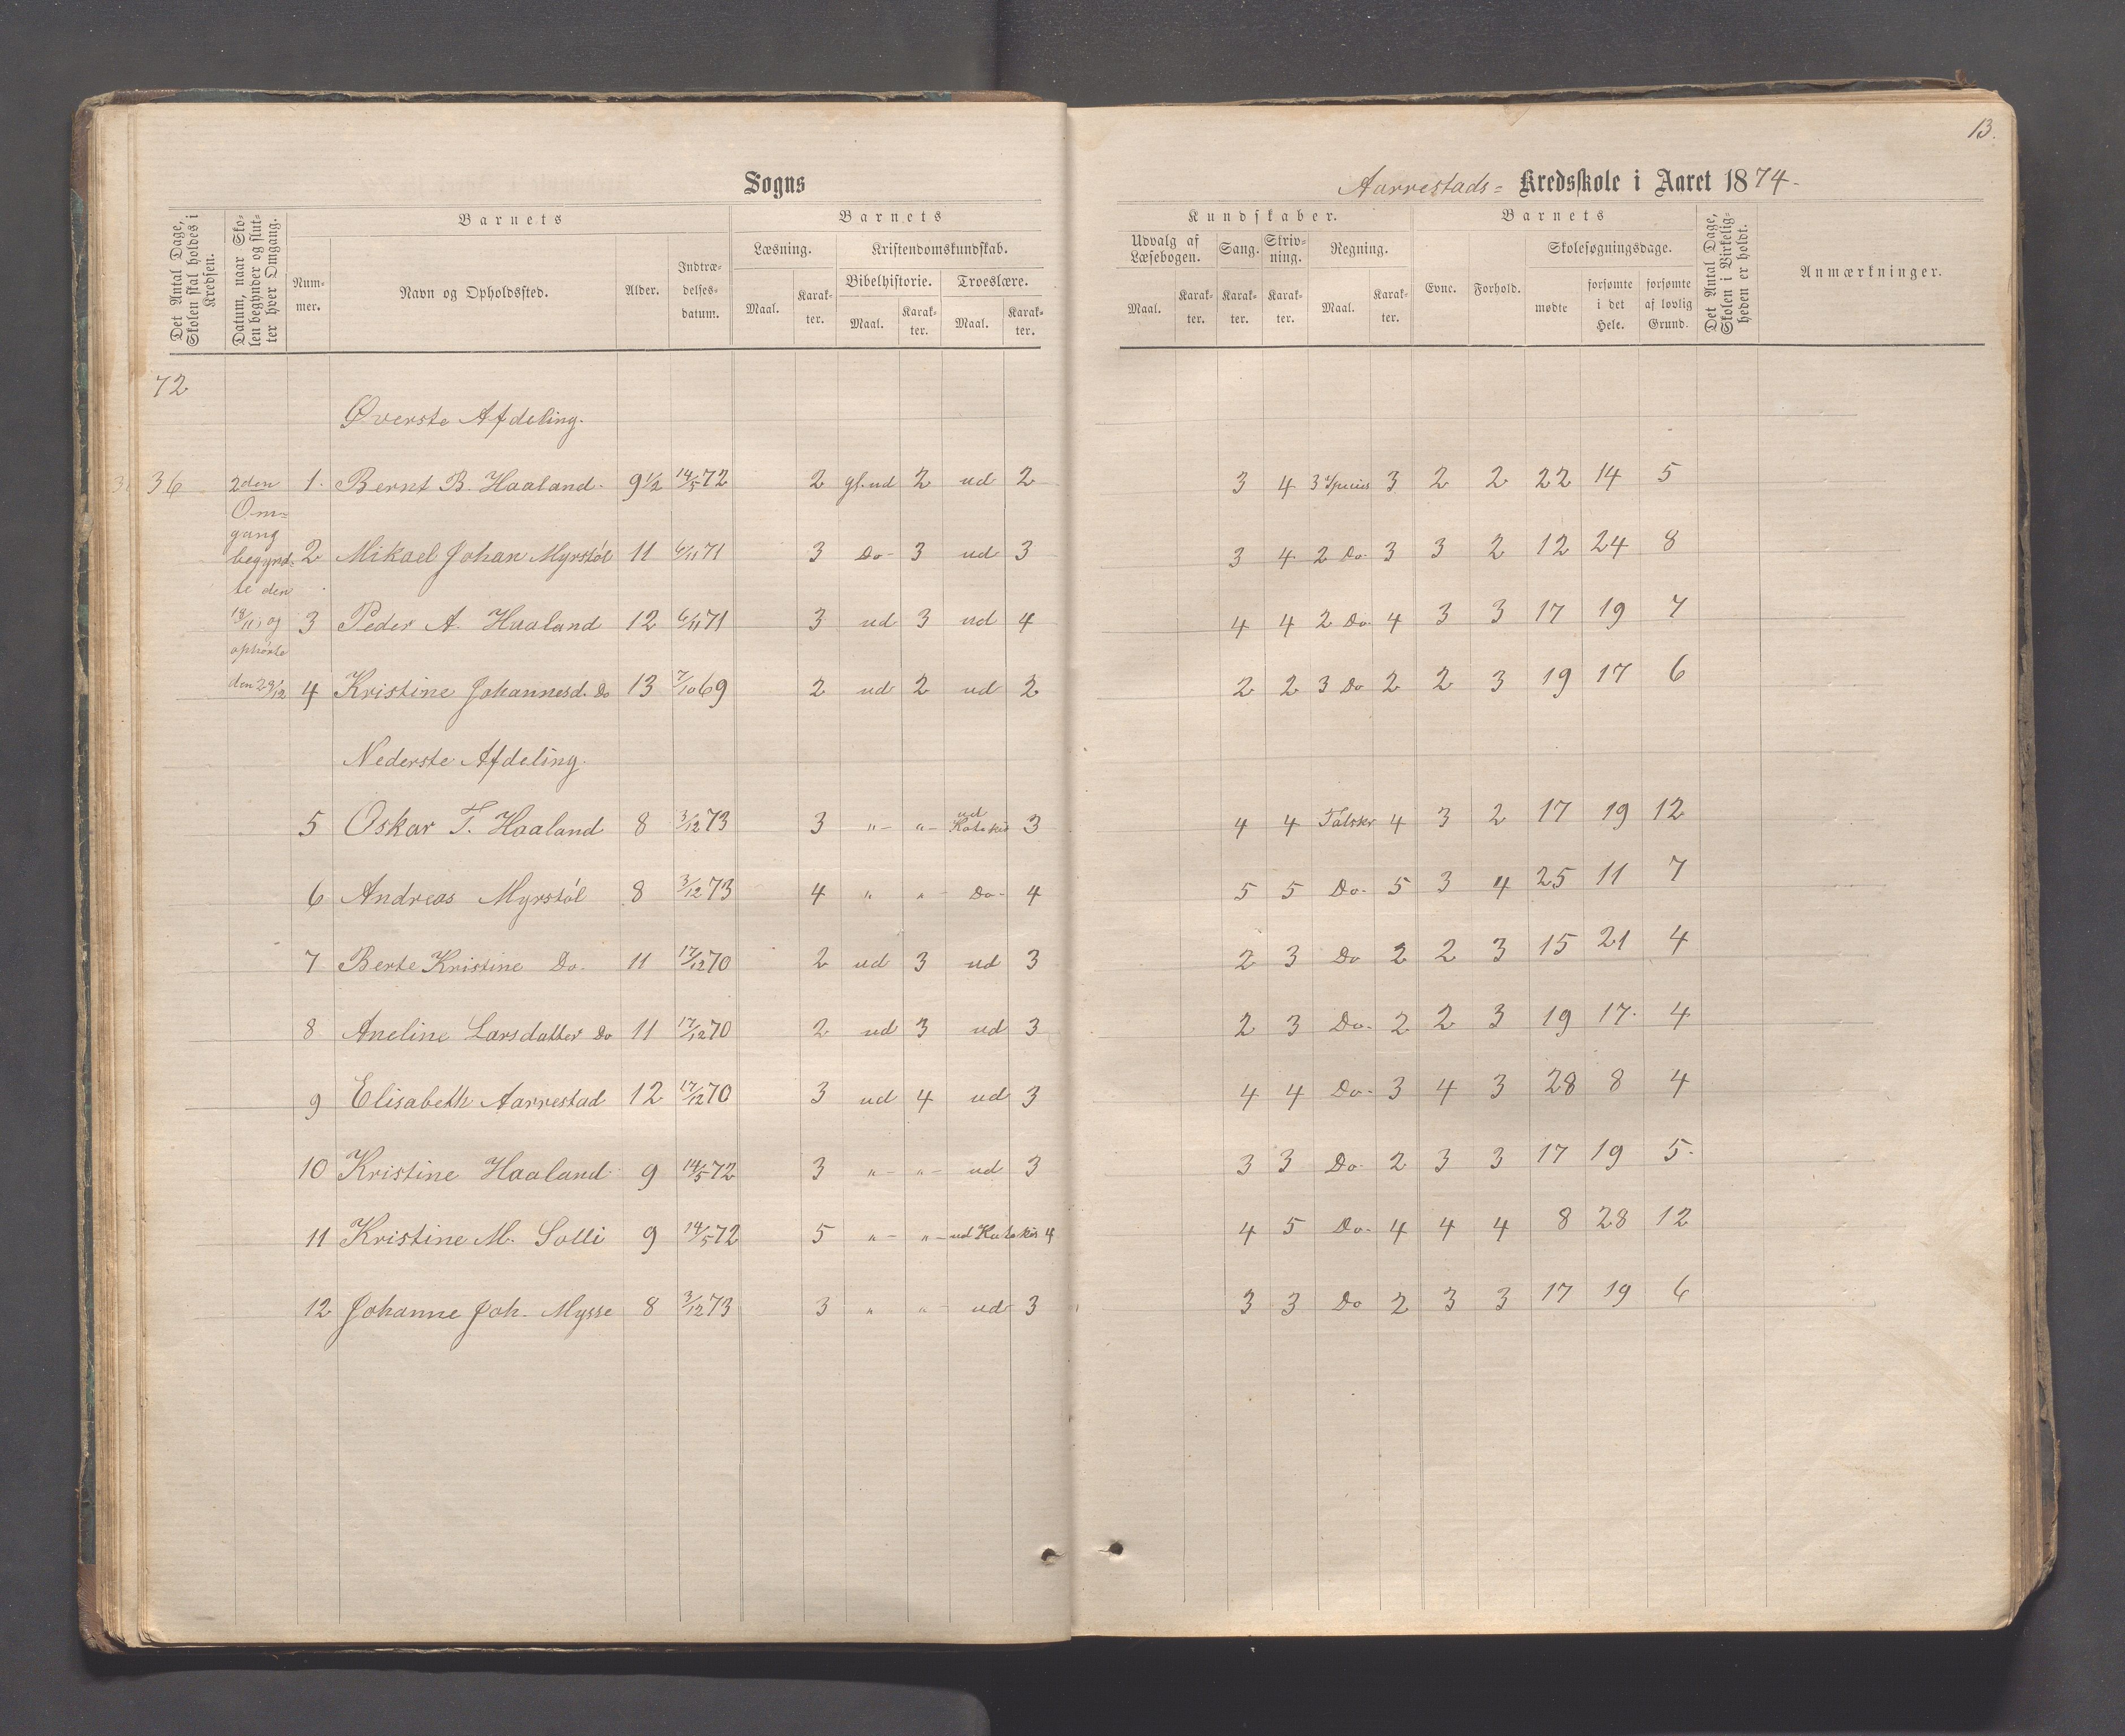 13.
Sogns
Aarrestads= Kredsskole i Aaret 1874-
Det Antal Dage, Skolen skal holdes i Kredsen.
Datum, naar Skolen begynder og slutter hver Omgang.
Barnets
Nummer.
Navn og Opholdssted.
Alder.
Indtrædelsesdatum.
Barnets
Læsning.
Maal.
Karakter.
Kristendomskundskab.
Bibelhistorie.
Maal.
Karakter.
Troeslære.
Maal.
Karakter.
Kundskaber.
Udvalg af Læsebogen.
Maal.
Karakter.
Sang.
Karakter.
Skrivning.
Karakter.
Regning.
Maal.
Karakter.
Barnets
Evne.
Forhold.
Skolesøgningsdage.
mødte
forsømte i det Hele.
forsømte af lovlig Grund.
Det Antal Dage, Skolen i Virkeligheden er holdt.
Anmærkninger.
72
Øverste Afdeling.
36 2den 1. Bernt B. Haaland. 9 1/2 14/5 72 2 gl. ud 2 ud 2 3 4 3 Species 3 2 2 22 14 5
Om=
gang
begynd- 2 Mikael Johan Myrstøl 11 6/11 71 3 Do 3 ud 3 3 4 2 Do 3 3 2 12 24 8
te den
18/11, og 3 Peder A. Haaland 12 6/11 71 3 ud 3 ud 4 4 4 2 Do 4 3 3 17 19 7
ophørte
den 29/12 4 Kristine Johannesd. Do 13 7/10 69 2 ud 2 ud 2 2 2 3 Do 2 2 3 19 17 6
Nederste Afdeling.
5 Oskar T. Haaland 8 3/12 73 3 „ „ ud 3 4 4 Talskr 4 3 2 17 19 12
6 Andreas Myrstøl 8 3/12 73 4 „ „ Do 4 5 5 Do. 5 3 4 25 11 7
7 Berte Kristine Do. 11 17/12 70 2 ud 3 ud 3 2 3 Do 2 2 3 15 21 4
8 Aneline Larsdatter Do 11 17/12 70 2 ud 3 ud 3 2 3 Do. 2 2 3 19 17. 4
9 Elisabeth Aarrestad 12 17/12 70 3 ud 4 ud 3 4 4 Do. 3 4 3 28 8 4
10 Kristine Haaland 9 14/5 72 3 „ „ ud 3 3 3 Do. 2 3 3 17 19 5.
11 Kristine M. Solli 9 14/5 72 5 „ „ ud 4 4 5 Do. 4 4 4 8 28 12
12 Johanne Joh. Mysse 8 3/12 73 3 „ „ ud 3 3 3 Do 2 3 3 17 19 6